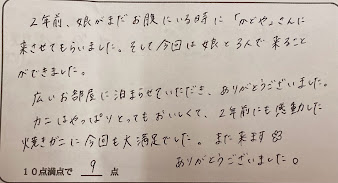 2年前、娘がまだお腹にいる時に「かどや」さんに
来させてもらいました。そして今回は娘と3人で来ること
ができました。
広いお部屋に泊まらせていただき、ありがとうございました。
カニはやっぱりとってもおいしくて、2年前にも感動した
焼きガニに今回も大満足でした。また来ます
ありがとうございました。
10点満点で 9 点